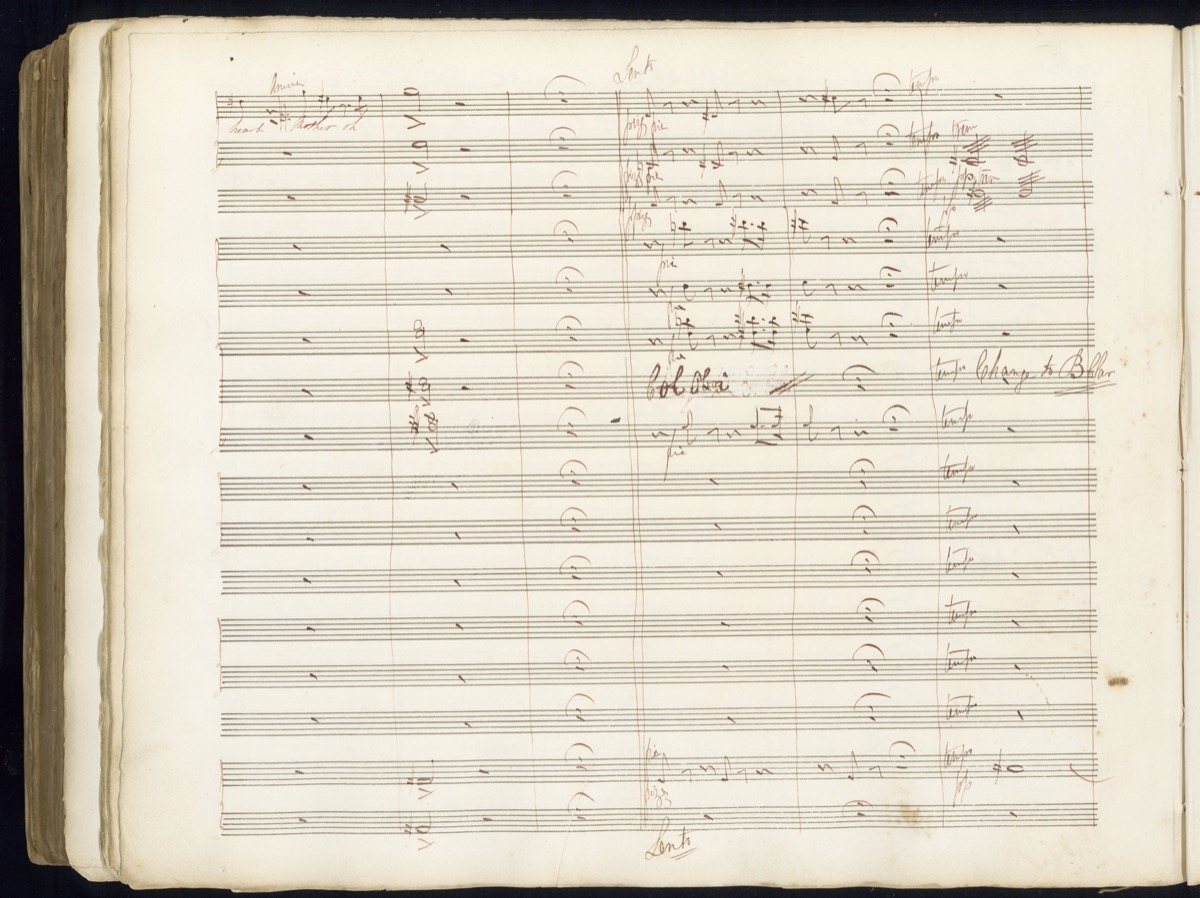 Lento
tempo
heart Mother oh
pizz pia
tempo trem
pizz pia
tempo pp trem
pizz
pp
tempo
pia
tempo
tempo
pia
Col Oboi
tempo Change to B Clar
tempo
pia
tempo
tempo
tempo
tempo
tempo
tempo
pia
tempo
pizz
pp
Lento